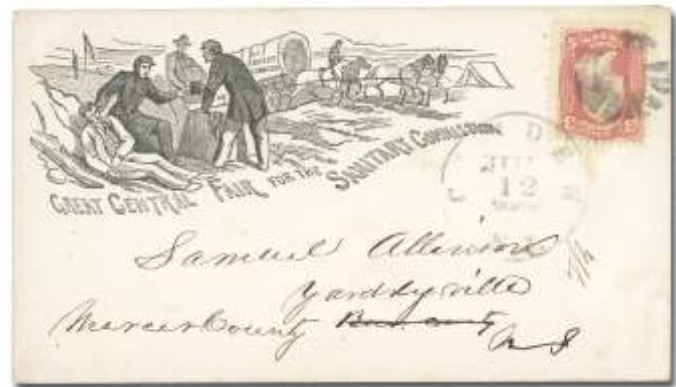 GREAT CENTRAL FAIR FOR THE SANITARY COMMISSION
12
Samuel Allinson
Yarddyville
Mercer County N J